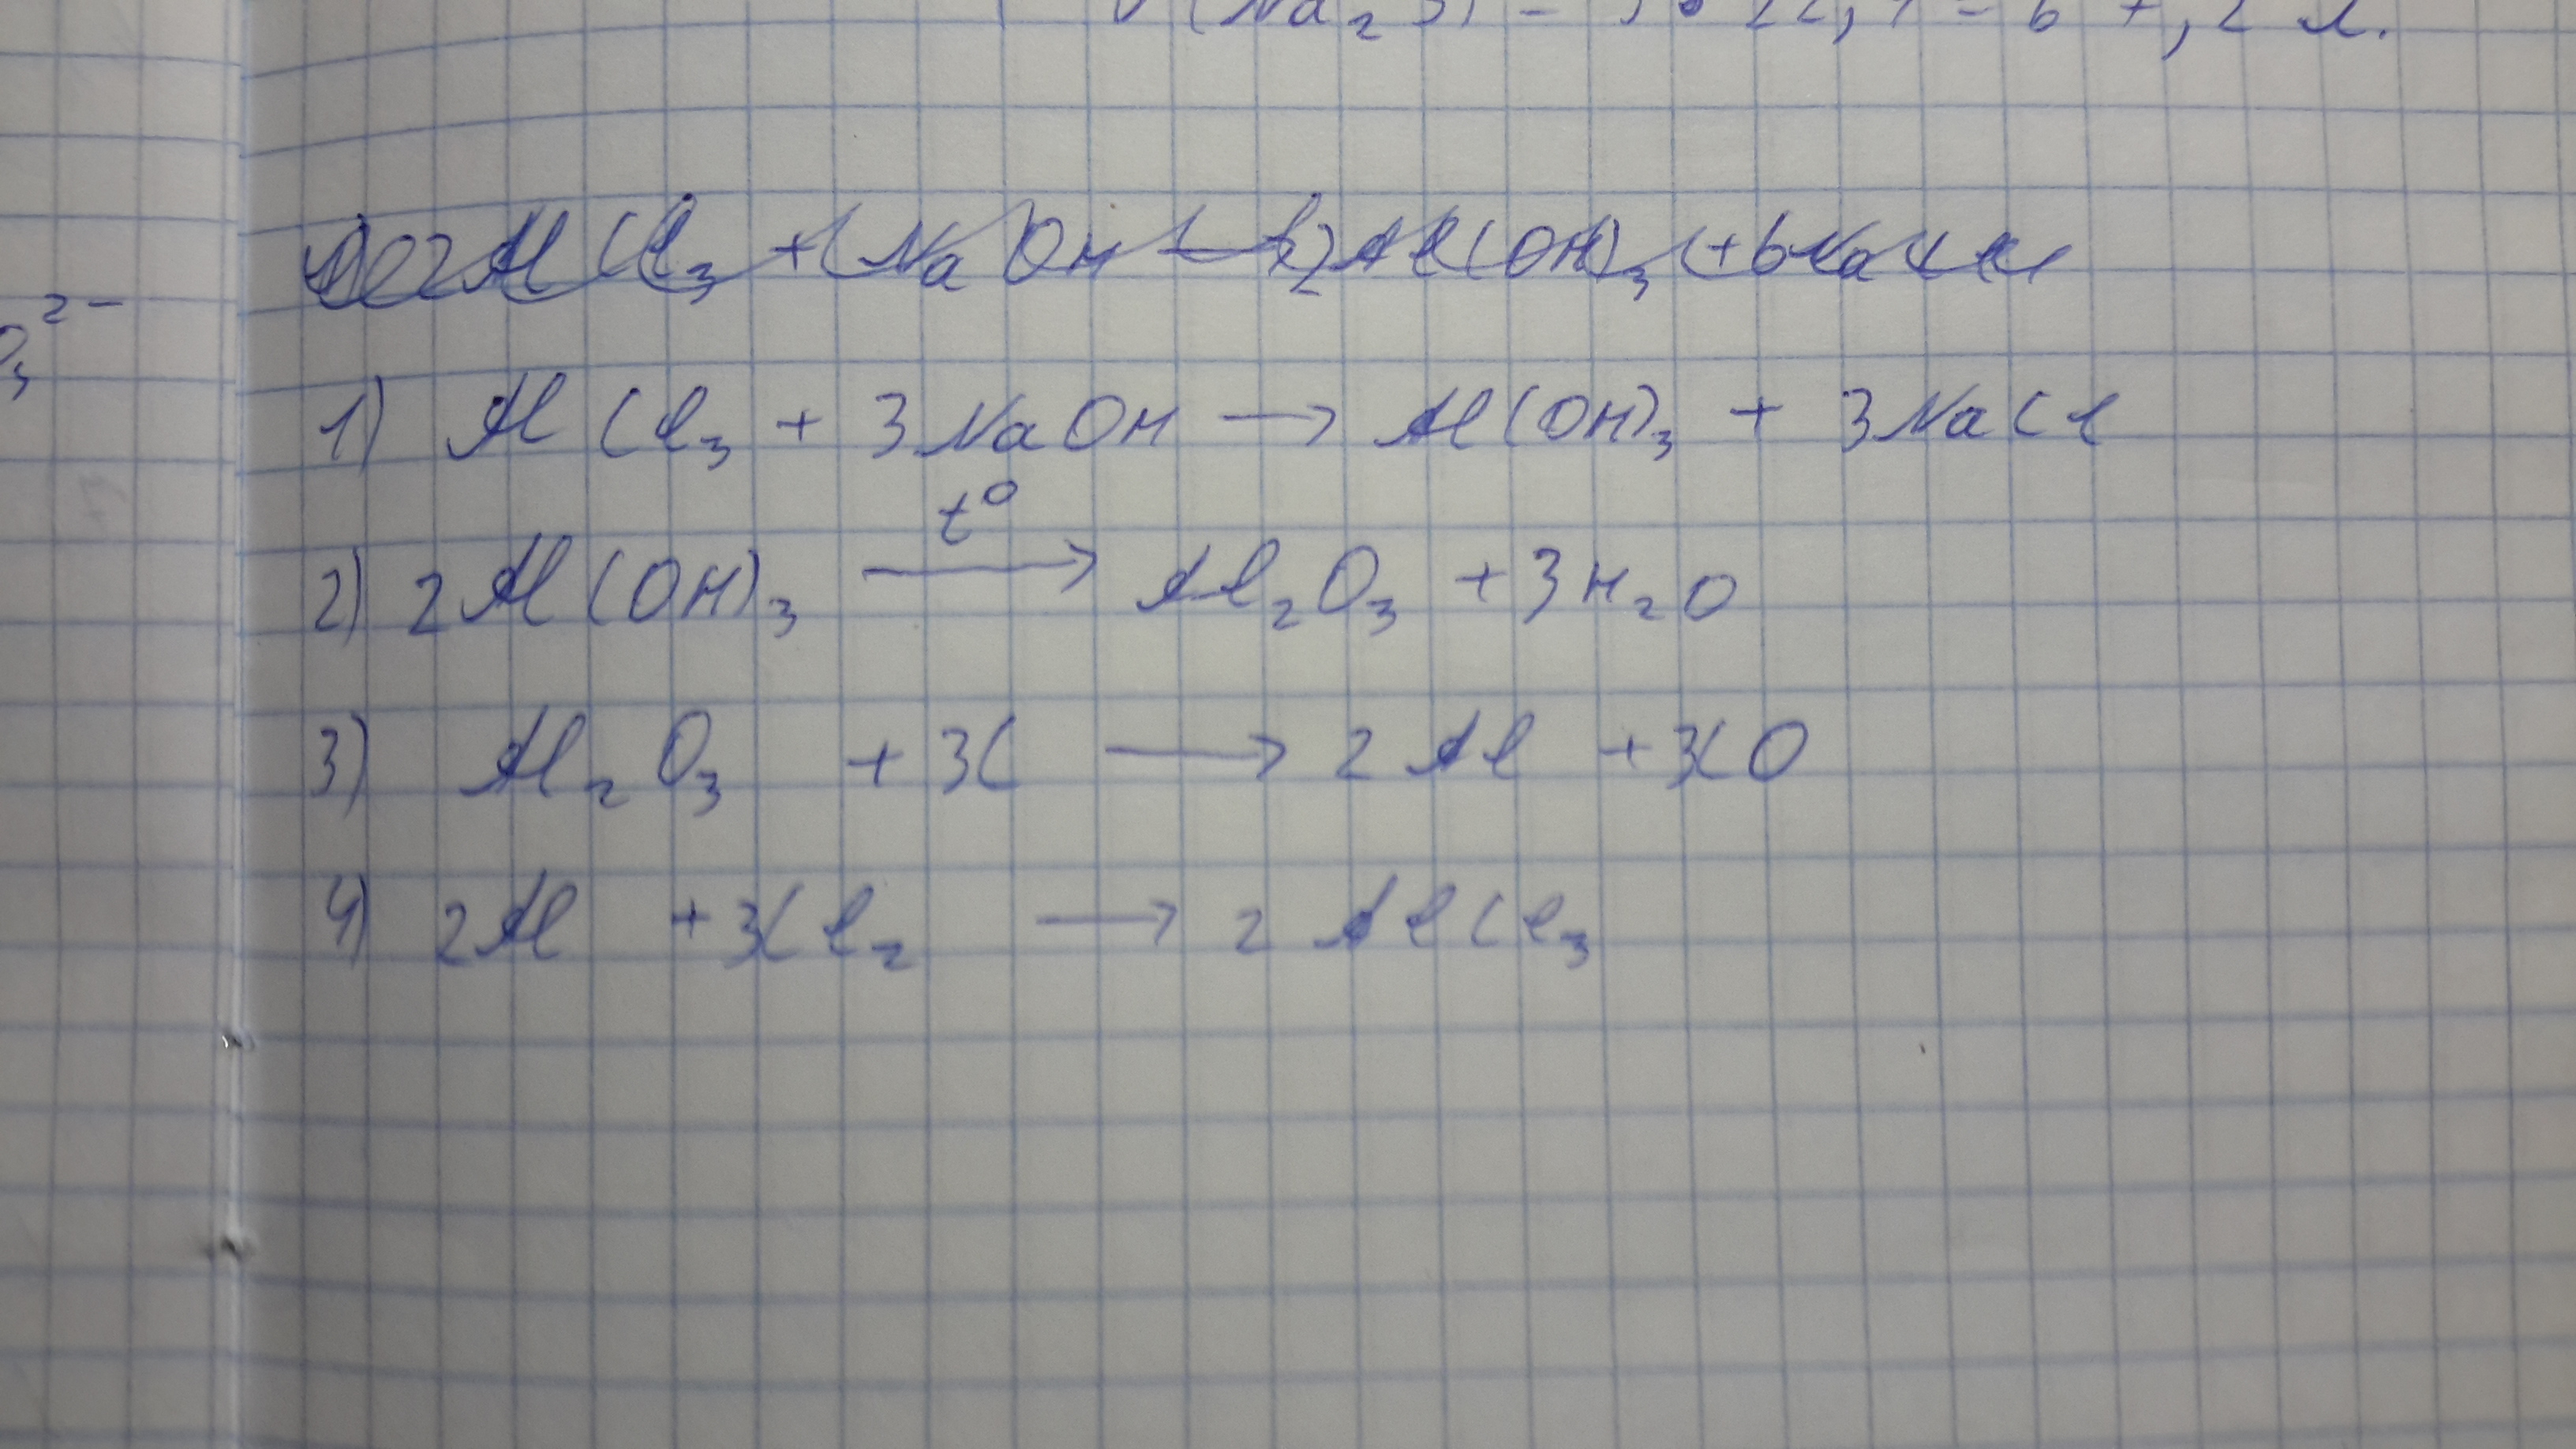 V(Na₂S) = 3 • 22,4 = 67,2 л.
O₃²⁻
AlCl₃ + NaOH → 2Al(OH)₃ + 6NaCl
1) AlCl₃ + 3NaOH → Al(OH)₃ + 3NaCl
t⁰
2) 2Al(OH)₃ → Al₂O₃ + 3H₂O
3) Al₂O₃ + 3C → 2Al + 3CO
4) 2Al + 3Cl₂ → 2AlCl₃